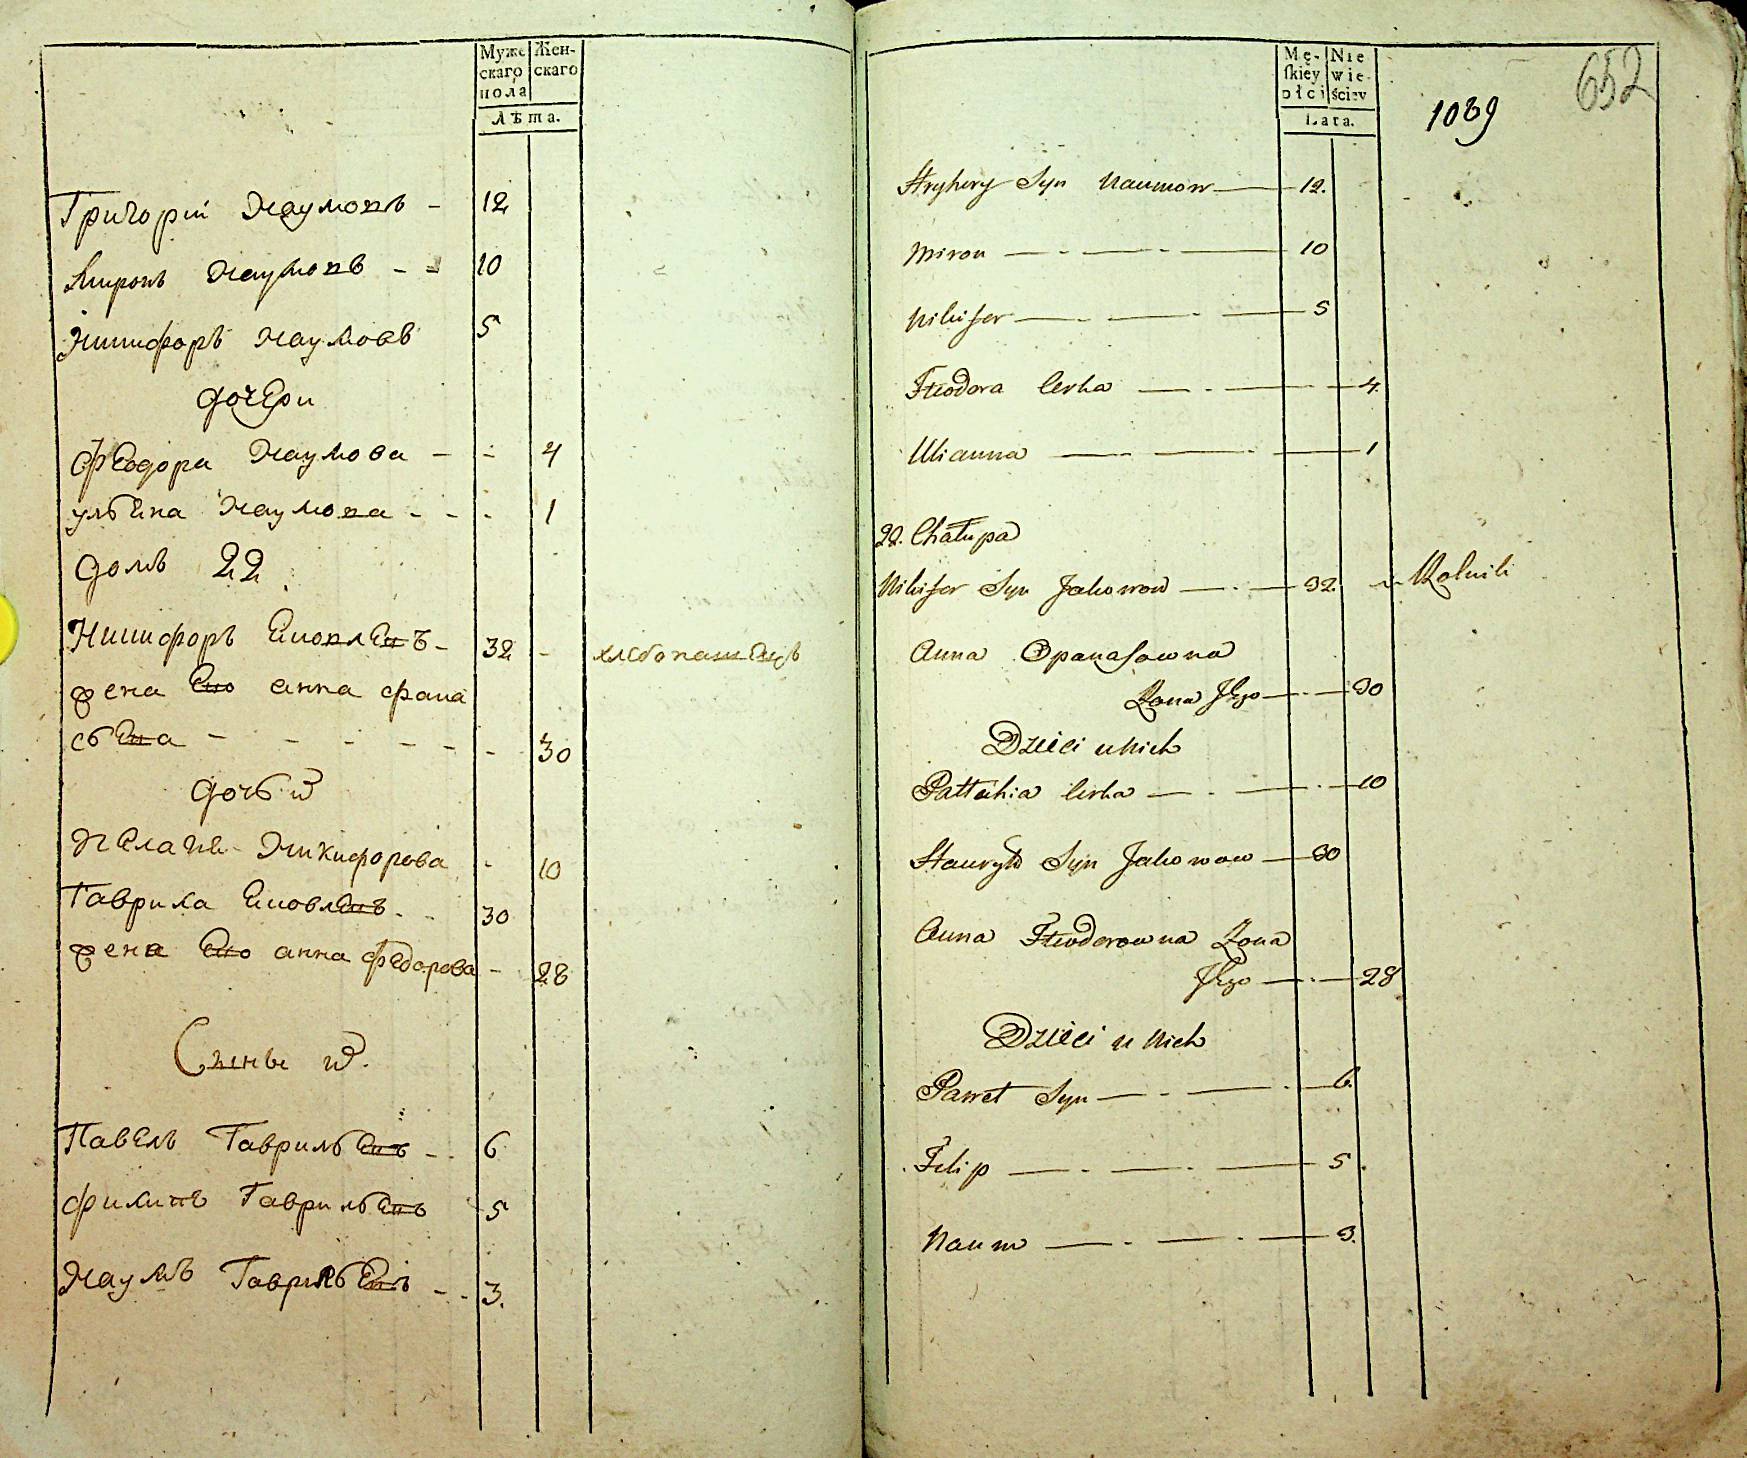 Муже Жен-
скаго скаго
пола
Лѣта.
Григорий Наумовъ - 12
Миронъ Наумовъ - - 10
Никифоръ Наумовъ 5
дочери
Феодора Наумова - - 4
ульяна Наумова - - - 1
домъ 22
Никифоръ - 32 - хлебопашецъ
жена Его анна Фана
сьева - - - - - - 30
дочь ихъ
Никифорова - 10
Гаврила - - 30
жена Его анна Федорова - 28
Сыны ихъ.
Павелъ - - 6
Филипъ 5
Наумъ - - 3.
Mę- Nie
skiey wie-
płci ściey
Lata.
1089
652
Hryhory Syn Naumow 12.
Miron 10
Nikifor 5
Fteodora Corka 4
Ulianna 1
22. Chałupa
Nikifor Syn Jakowow 32 Rolnik
Anna Opanasowna
Zona Jego 30
Dzieci u Nich
Corka 10
Hawryło Syn Jakowow 30
Anna Fteodorowna Zona
Jego 28
Dzieci u Nich
Paweł Syn 6.
Filip 5
Naum 3.